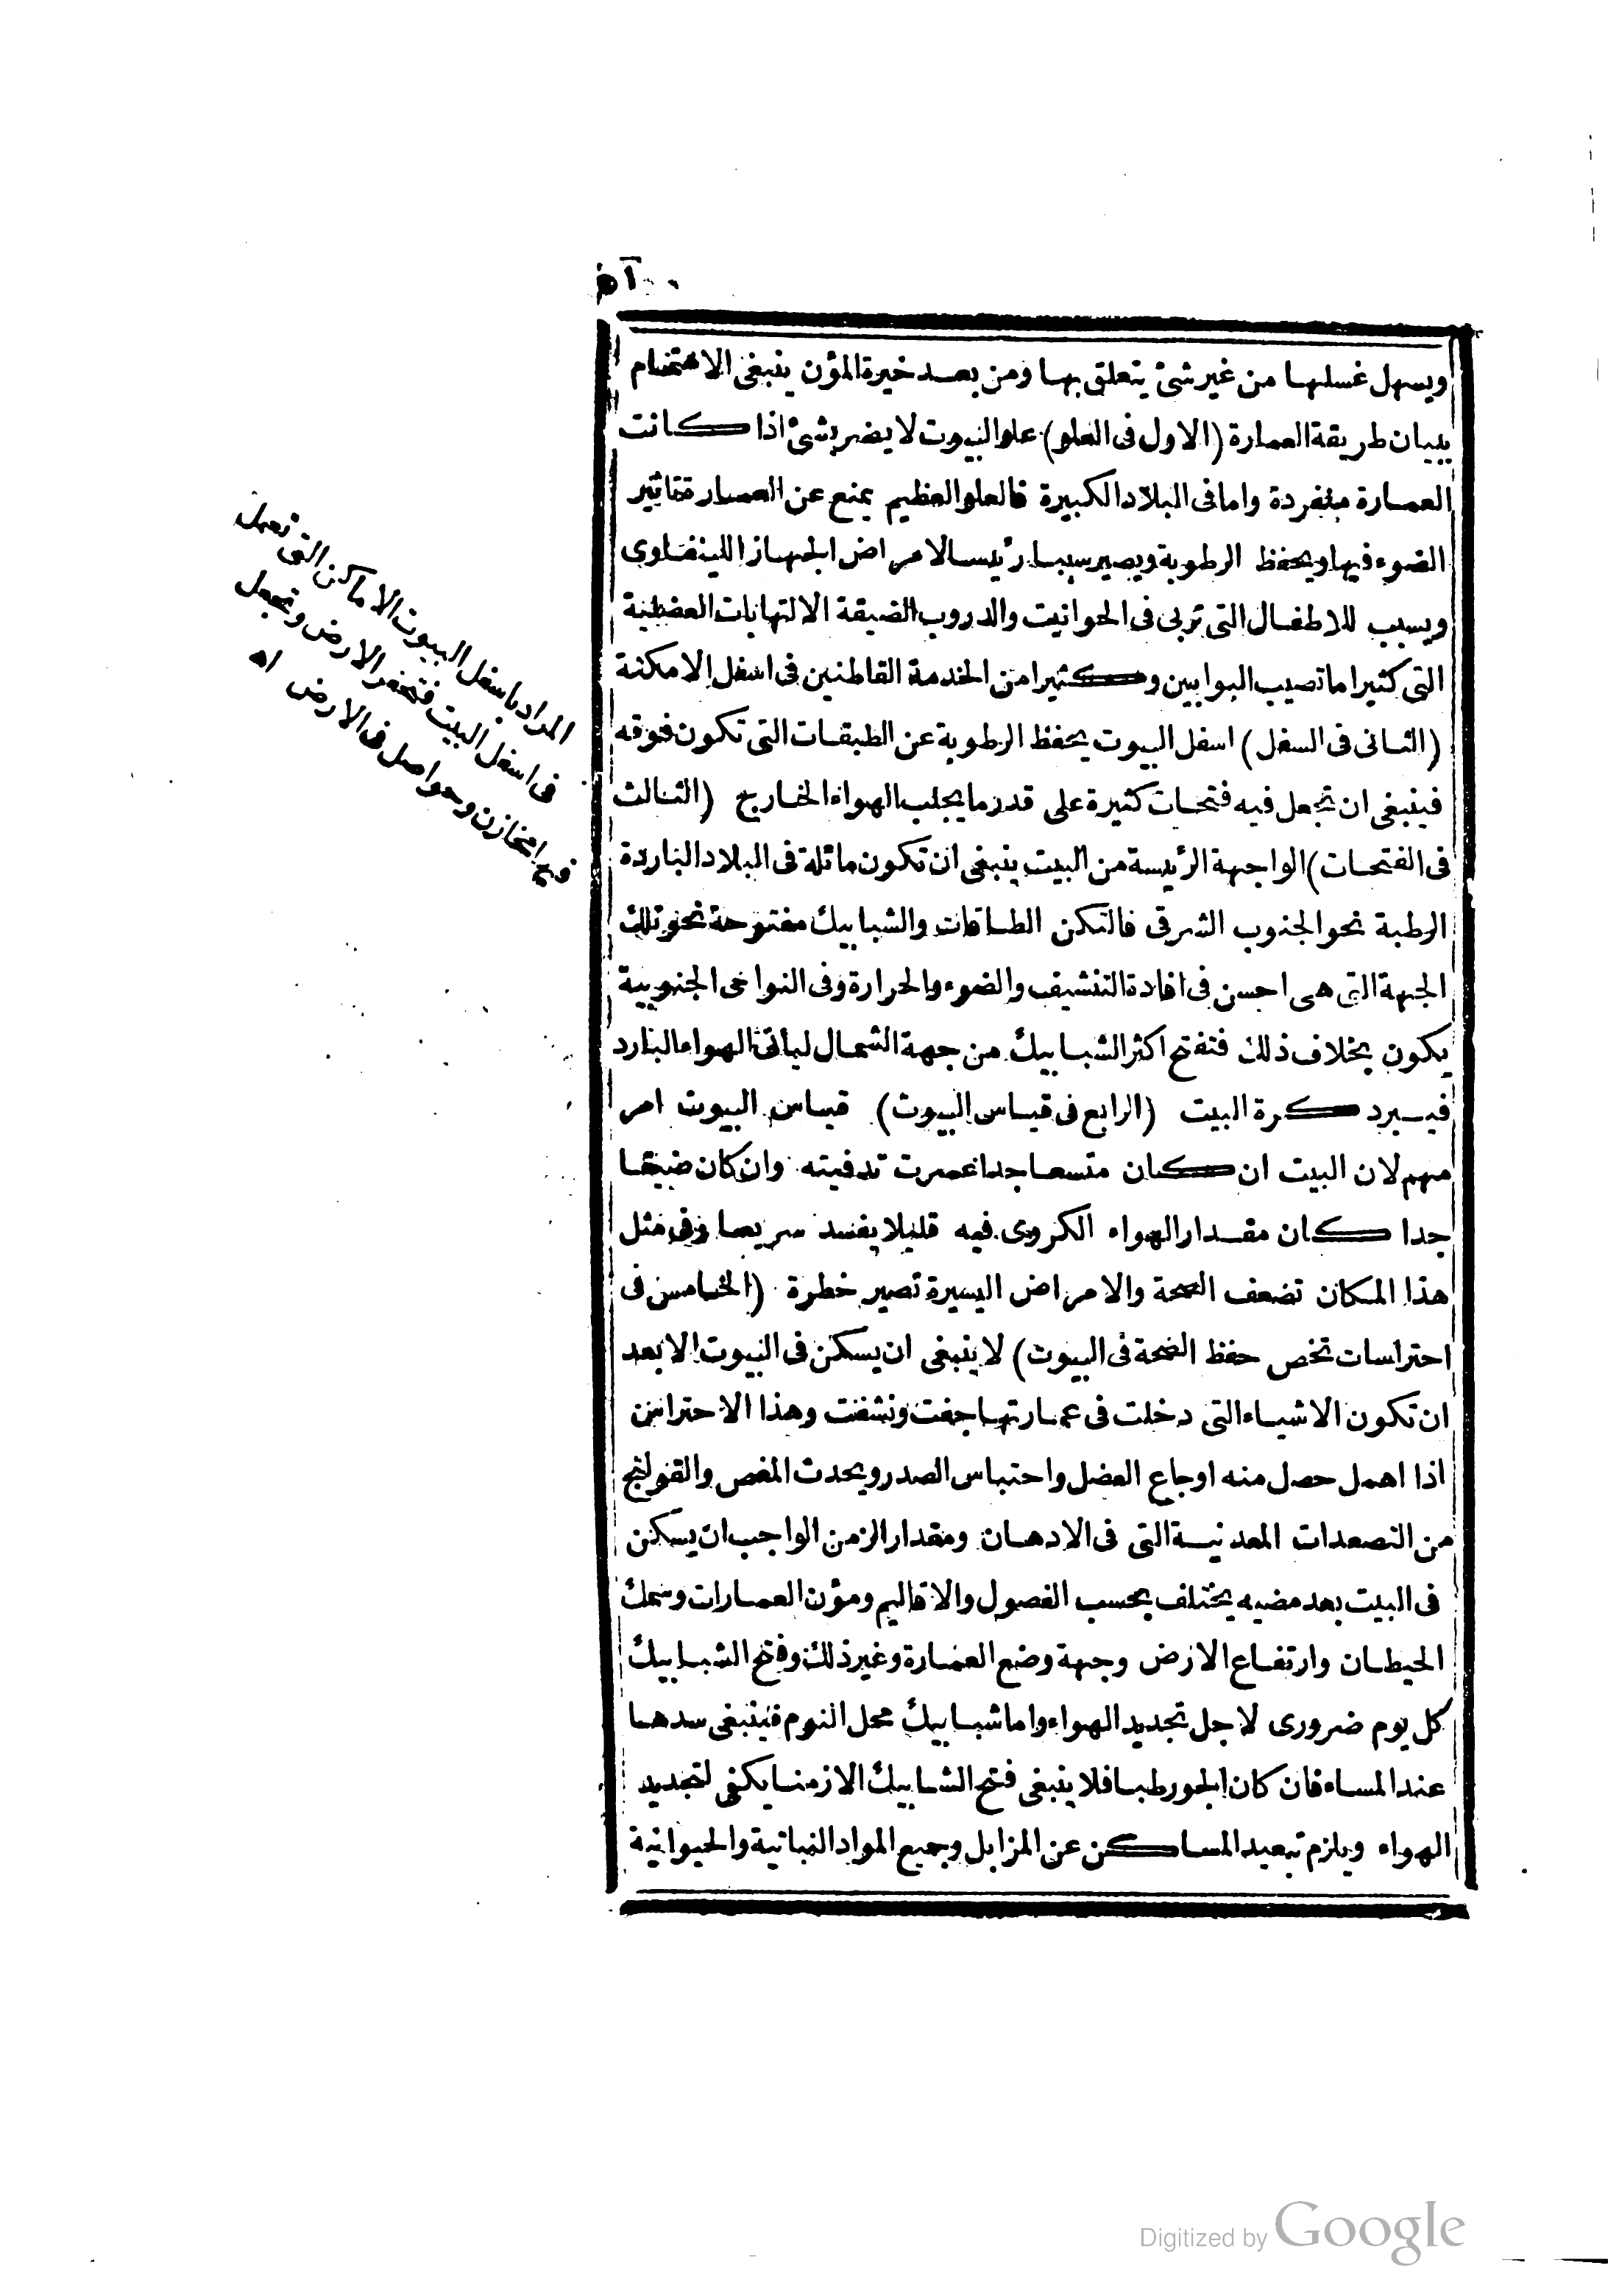 ويسهل غسلها من غير شئ يتعلق بها ومن بعد خيرة المؤن ينبغى الاهتمام
ببيان طريقة العمارة (الاول فى العلو) علو البيوت لا يضر بشئ اذا كانت
العمارة منفردة واما فى البلاد الكبيرة فالعلو العظيم يمنع عن العمارة تاثير
الضوء فيها ويحفظ الرطوبة ويصير سببا رئيسا لامراض الجهاز اللينفاوى
ويسبب للاطفال التى تربى فى الحوانيت والدروب الضيقة الالتهابات العظمية
التى كثيرا ما تصيب البوابين وكثيرا من الخدمة القاطنين فى اسفل الامكنة
(الثانى فى السفل) اسفل البيوت يحفظ الرطوبة عن الطبقات التى تكون فوقه
فينبغى ان تجعل فيه فتحات كثيرة على قدر ما يجلب الهواء الخارج (الثالث
فى الفتحات) الواجهة الرئيسة من البيت ينبغى ان تكون مائلة فى البلاد الباردة
الرطبة نحو الجنوب الشرقى فالتكن الطاقات والشبابيك مفتوحة نحو تلك
الجهة التى هى احسن فى افادة التنشيف والضوء والحرارة وفى النواحى الجنوبية
يكون بخلاف ذلك فتفتح اكثر الشبابيك من جهة الشمال لياتى الهواء البارد
فيبرد كرة البيت (الرابع فى قياس البيوت) قياس البيوت امر
مهم لان البيت ان كان متسعا جدا عسرت تدفيته وان كان ضيقا
جدا كان مقدار الهواء الكروى فيه قليلا يفسد سريعا وفى مثل
هذا المكان تضعف الصحة والامراض اليسيرة تصير خطرة (الخامس فى
احتراسات تخص حفظ الصحة فى البيوت) لا ينبغى ان يسكن فى البيوت الا بعد
ان تكون الاشياء التى دخلت فى عمارتها جفت ونشفت وهذا الاحتراس
اذا اهمل حصل منه اوجاع العضل واحتباس الصدر ويحدث المغص والقولنج
من التصعدات المعدنية التى فى الادهان ومقدار الزمن الواجب ان يسكن
فى البيت بعد مضيه يختلف بحسب الفصول والاقاليم ومؤن العمارات وسمك
الحيطان وارتفاع الارض وجهة وضع العمارة وغير ذلك وفتح الشبابيك
كل يوم ضرورى لاجل تجديد الهواء واما شبابيك محل النوم فينبغى سدها
عند المساء فان كان الجو رطبا فلا ينبغى فتح الشبابيك الا زمنا يكفى لتجديد
الهواء ويلزم تبعيد المساكن عن المزابل وجميع المواد النباتية والحيوانية
المراد باسفل البيوت الاماكن التى تعمل
فى اسفل البيت فتحفر الارض وتجعل
فيها مخازن وحواصل فى الارض اه
Digitized by Google